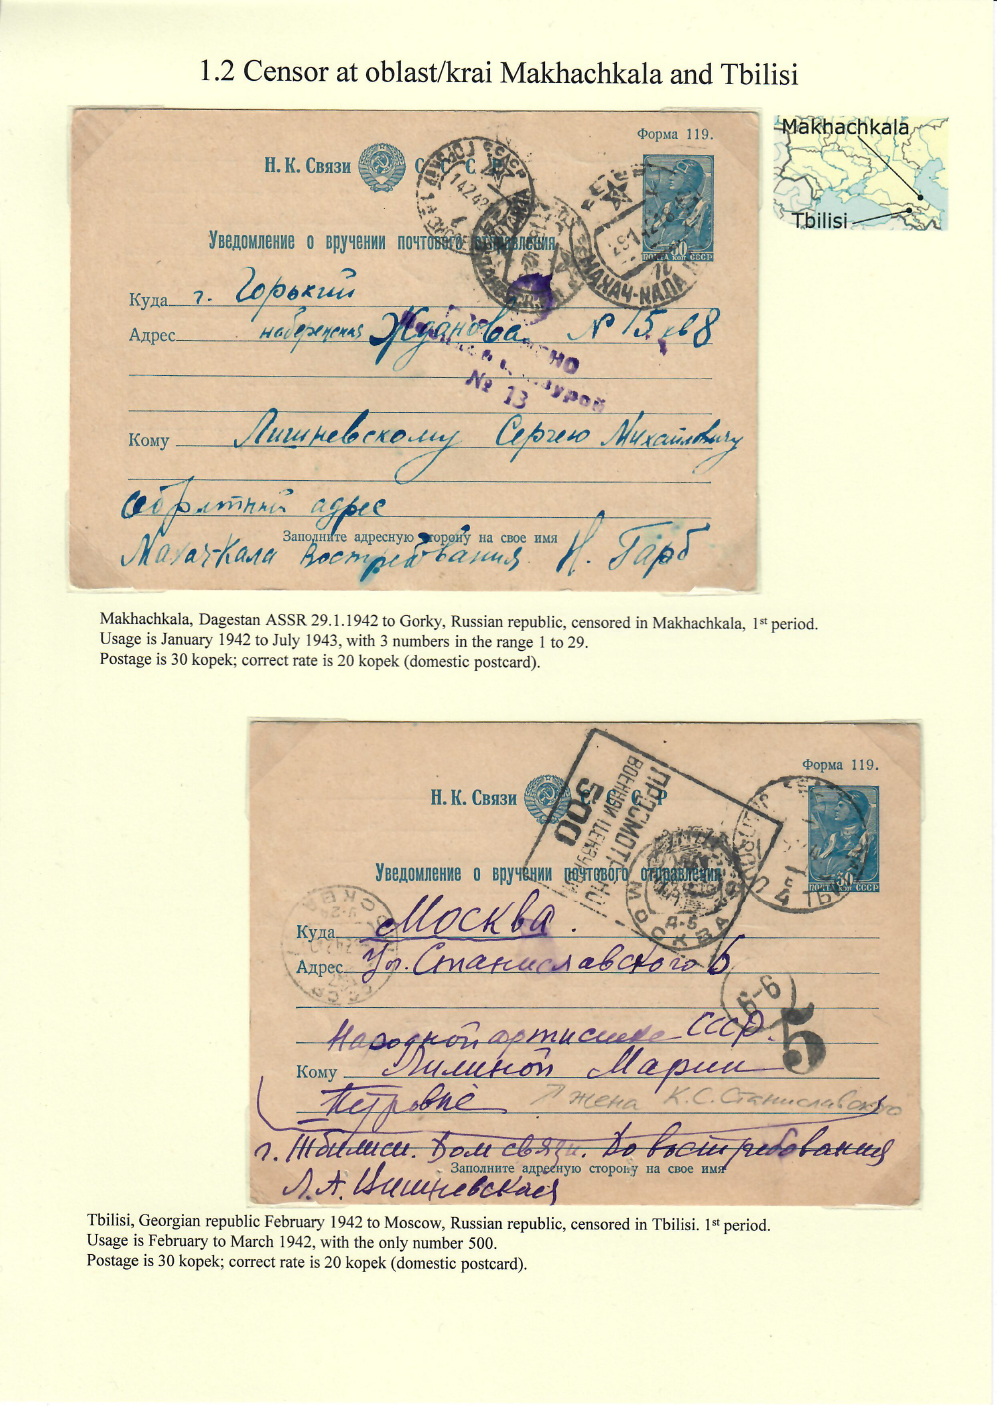 1.2 Censor at oblast/krai Makhachkala and Tbilisi
Makhachkala
Tbilisi
Форма 119.
Н. К. Связи С С С Р
Уведомление о вручении почтового отправления
МАХАЧ-КАЛА
Куда г. Горький
Адрес набережная Жданова № 15 кв 8
№ 13
Кому Лишневскому Сергею Михайловичу
Обратный адрес
Заполните адресную сторону на свое имя
Махач-Кала востребования Н. Гарб
Makhachkala, Dagestan ASSR 29.1.1942 to Gorky, Russian republic, censored in Makhachkala, 1st period.
Usage is January 1942 to July 1943, with 3 numbers in the range 1 to 29.
Postage is 30 kopek; correct rate is 20 kopek (domestic postcard).
Форма 119.
Н. К. Связи С С С Р
ПРОСМОТРЕНО
ВОЕННОЙ ЦЕНЗУРОЙ
500
ПОЧТА 30 КОП СССР
Уведомление о вручении почтового отправления
МОСКВА
Куда Москва.
Адрес Ул. Станиславского 6
6-6
5
Народной артистке СССР.
Кому Лилиной Марии
Петровне жена К.С. Станиславского
г. Тбилиси. Дом связи. До востребования
Заполните адресную сторону на свое имя
Л.А. Вишневская
Tbilisi, Georgian republic February 1942 to Moscow, Russian republic, censored in Tbilisi. 1st period.
Usage is February to March 1942, with the only number 500.
Postage is 30 kopek; correct rate is 20 kopek (domestic postcard).